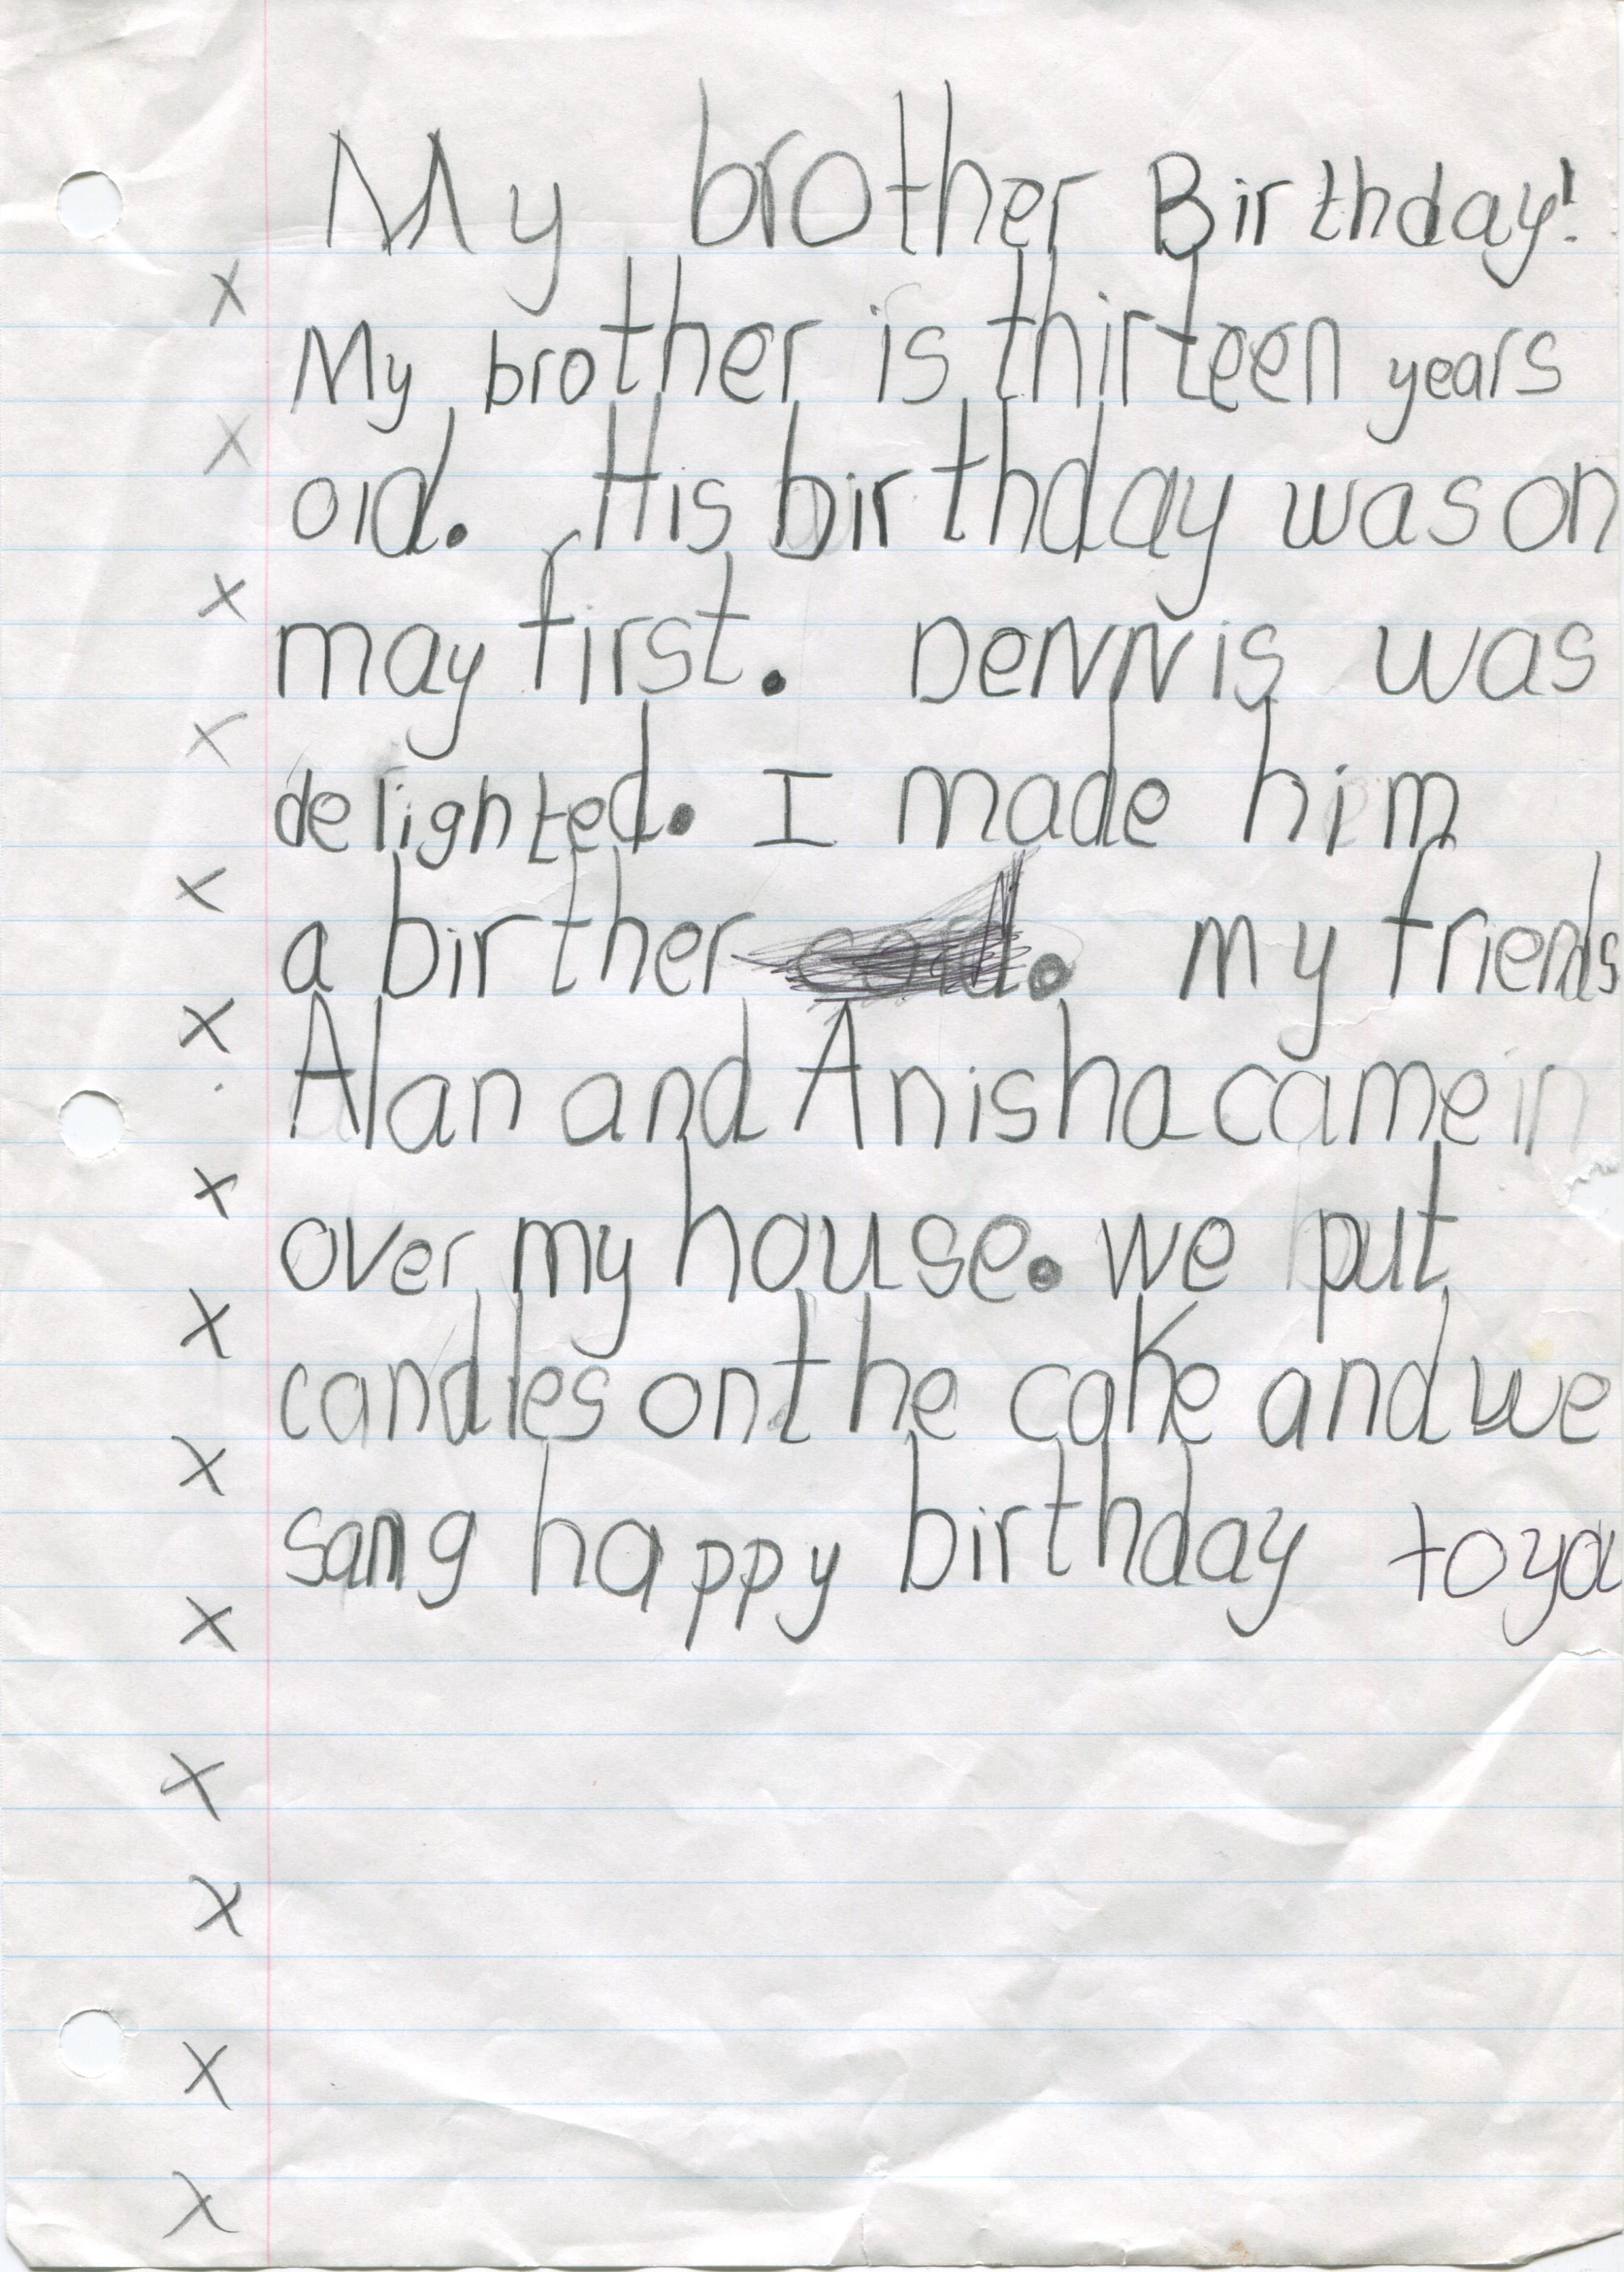 My brother Birthday!
x
My brother is thirteen years
x
old. His birthday was on
x
may first. Dennis was
x
delighted. I made him
x
a birther . my friends
x
Alan and Anisha came in
x
over my house. we put
x
candles on the cake and we
x
sang happy birthday to you
x
x
x
x
x